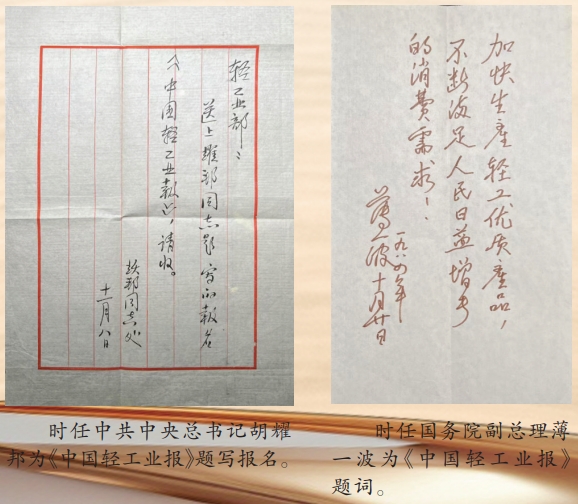 轻工业部：
送上耀邦同志题写的報名
《中国轻工业報》，请收。
耀邦同志处
十一月八日
加快生產轻工优质產品，
不断满足人民日益增长
的消费需求！
一九八四年
薄一波十月廿日
时任中共中央总书记胡耀
邦为《中国轻工业报》题写报名。
时任国务院副总理薄
一波为《中国轻工业报》
题词。